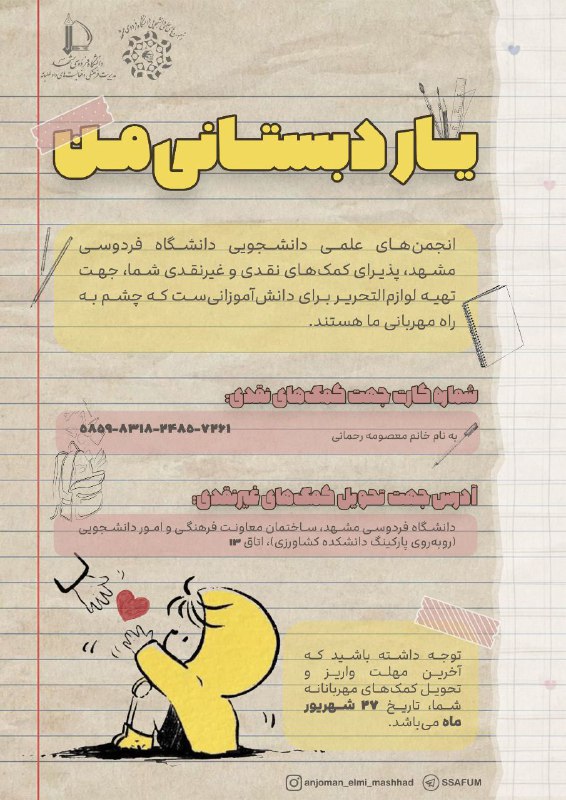 دانشگاه فردوسی مشهد
مدیریت فرهنگی و فعالیت‌های داوطلبانه
یار دبستانی من
انجمن‌های علمی دانشجویی دانشگاه فردوسی
مشهد، پذیرای کمک‌های نقدی و غیرنقدی شما، جهت
تهیه لوازم‌التحریر برای دانش‌آموزانی‌ست که چشم به
راه مهربانی ما هستند.
شماره کارت جهت کمک‌های نقدی:
۵۸۵۹-۸۳۱۸-۲۴۸۵-۷۲۶۱
به نام خانم معصومه رحمانی
آدرس جهت تحویل کمک‌های غیرنقدی:
دانشگاه فردوسی مشهد، ساختمان معاونت فرهنگی و امور دانشجویی
(روبه‌روی پارکینگ دانشکده کشاورزی)، اتاق ۱۳
توجه داشته باشید که
آخرین مهلت واریز و
تحویل کمک‌های مهربانانه
شما، تاریخ ۲۷ شهریور
ماه می‌باشد.
anjoman_elmi_mashhad
SSAFUM